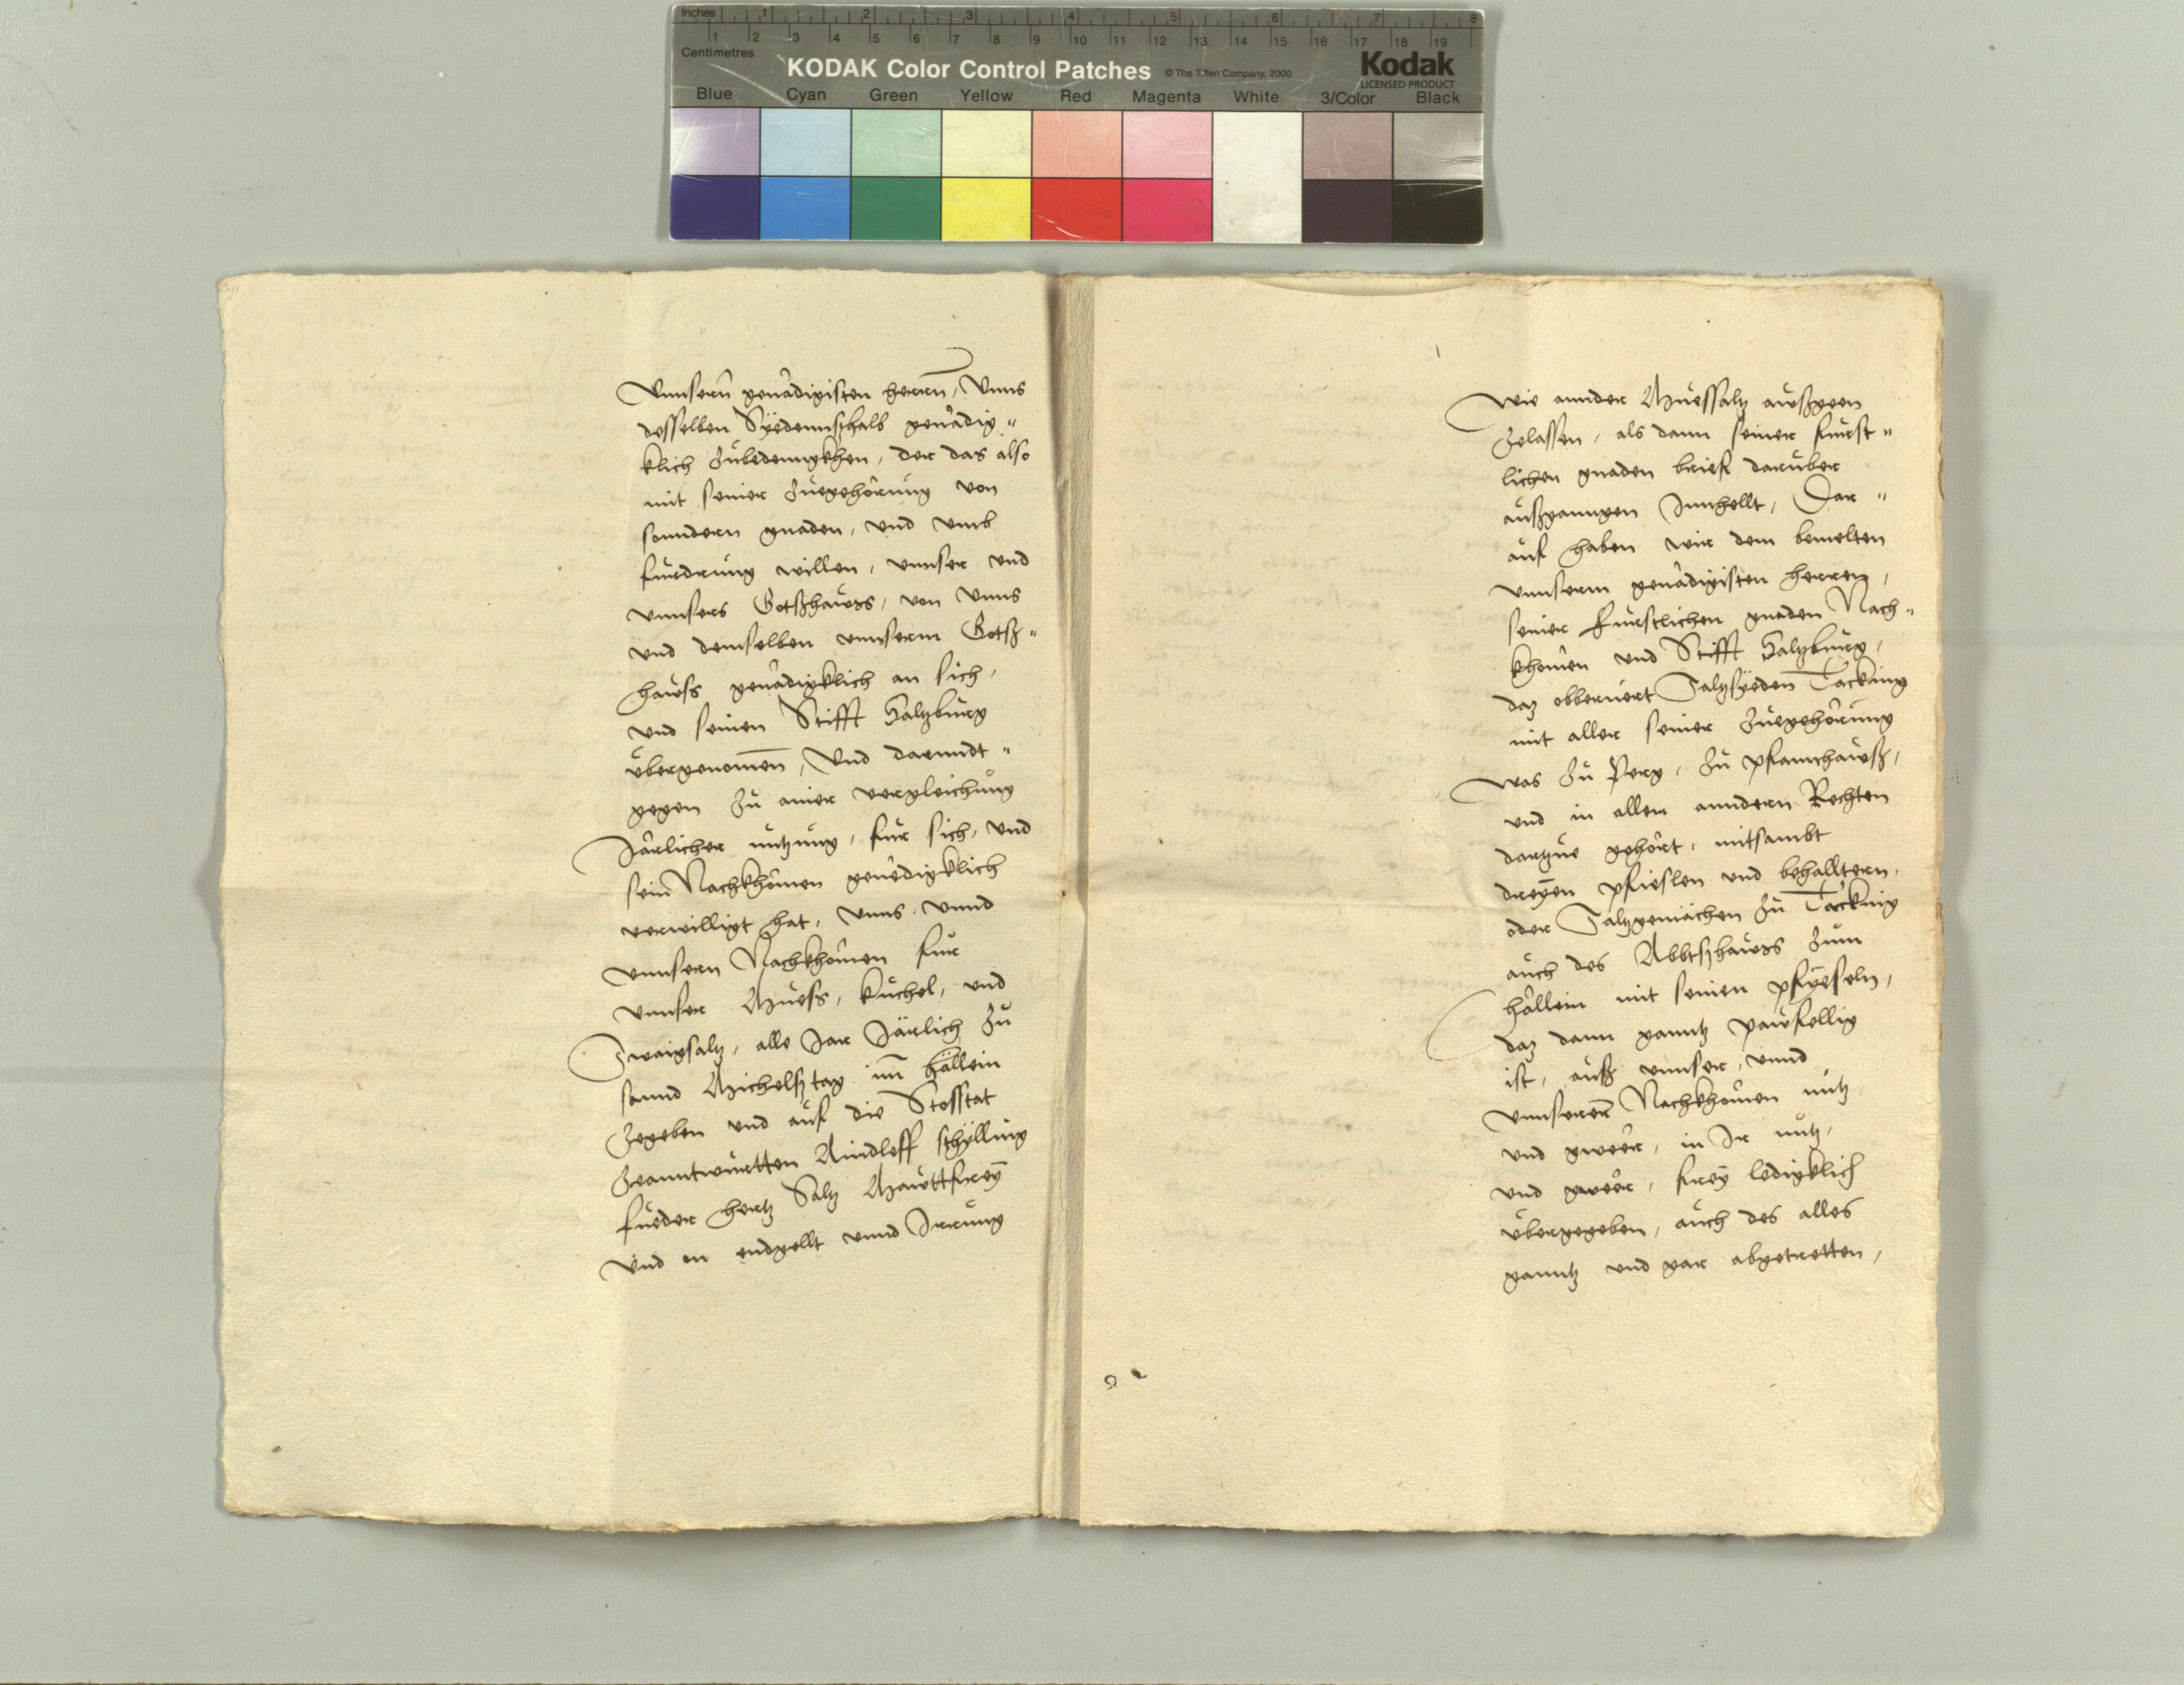 Inches 1 2 3 4 5 6 7 8
1 2 3 4 5 6 7 8 9 10 11 12 13 14 15 16 17 18 19
Centimetres
KODAK Color Control Patches © The Tiffen Company, 2000 Kodak
LICENSED PRODUCT
Blue Cyan Green Yellow Red Magenta White 3/Color Black
Vnnsern genädigisten herrn, Vnns
desselben Syedennszhalb genädig„
klich zubedenngkhen, der das also
mit seiner zuegehörung von
sonndern gnaden, vnd vmb
furdrung willen, vnnser vnd
vnnsers Gotßhawss, von vnns
vnd demselben vnnserm Gotß„
hawss genädigklich an sich,
vnd seinen Stifft Saltzburg
übergenomen, Vnd daenndt„
gegen zu ainer vergleichung
Järlicher nutzung, fur sich, vnd
sein Nachkhomen genedigklich
verwilligt hat, vnns vnnd
vnnsern Nachkhomen fur
vnnser Muess, kuchel, vnd
Swaigsaltz, alle Jar Järlich zu
sannd Michelsztag im hällein
zegeben vnd auf die Stosstat
zeanntwurtten Aindleff schylling
fueder hertz Saltz Mawttfrey
vnd on endgellt vnnd Irrung
wie annder Muessaltz awßgeen
zelassen, als dann seiner furst„
lichen gnaden brief daruber
außganngen Innhellt, Dar„
auf haben wir dem bemelten
vnnserm genädigisten herren,
seiner furstlichen gnaden Nach„
khomen vnd Stifft Saltzburg,
daz obberuert Saltzsyeden Tacking
mit aller seiner zuegehörung
was zu Perg, zu pfannhawß,
vnd in allem anndern Rechten
dartzue gehört, mitsambt
dreyen pfieslen vnd behalltern,
oder Saltzgemächen zu Täcking
auch des Abbtßhawss zum
hällein mit seinen pfyeseln,
daz dann ganntz pawfellig
ist, auß vnnser, vnnd
vnnserer Nachkhomen nutz
vnd gweer, in Ir nutz,
vnd gweer, frey ledigklich
übergegeben, auch des alles
ganntz vnd gar abgetretten,